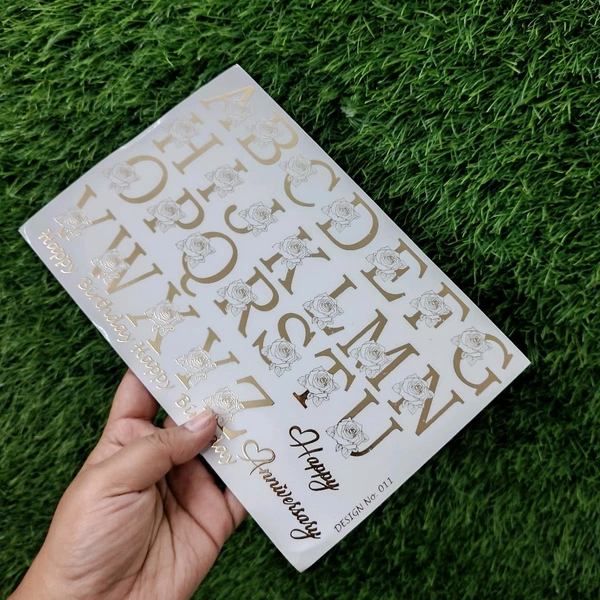 A B C D E F G
H I J K L M N
O P Q R S T U
V W X Y Z
Happy Birthday Happy Birthday
Happy
Anniversary
DESIGN No. 011